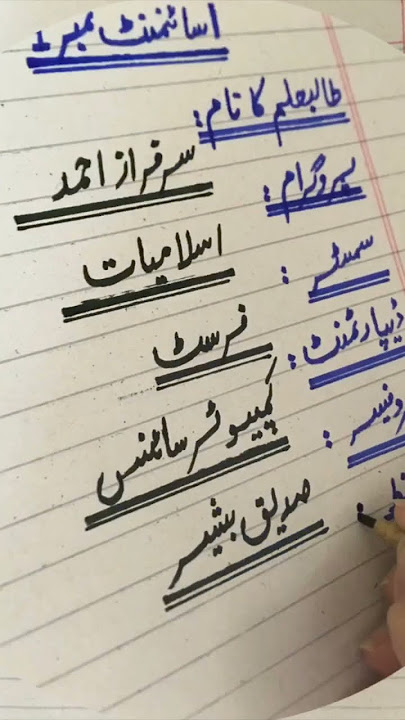 اسائمنٹ نمبر 1
طالبعلم کا نام: سرفراز احمد
پروگرام: اسلامیات
سمسٹر: فرسٹ
ڈیپارٹمنٹ: کمپیوٹر سائنس
صدیق بشیر